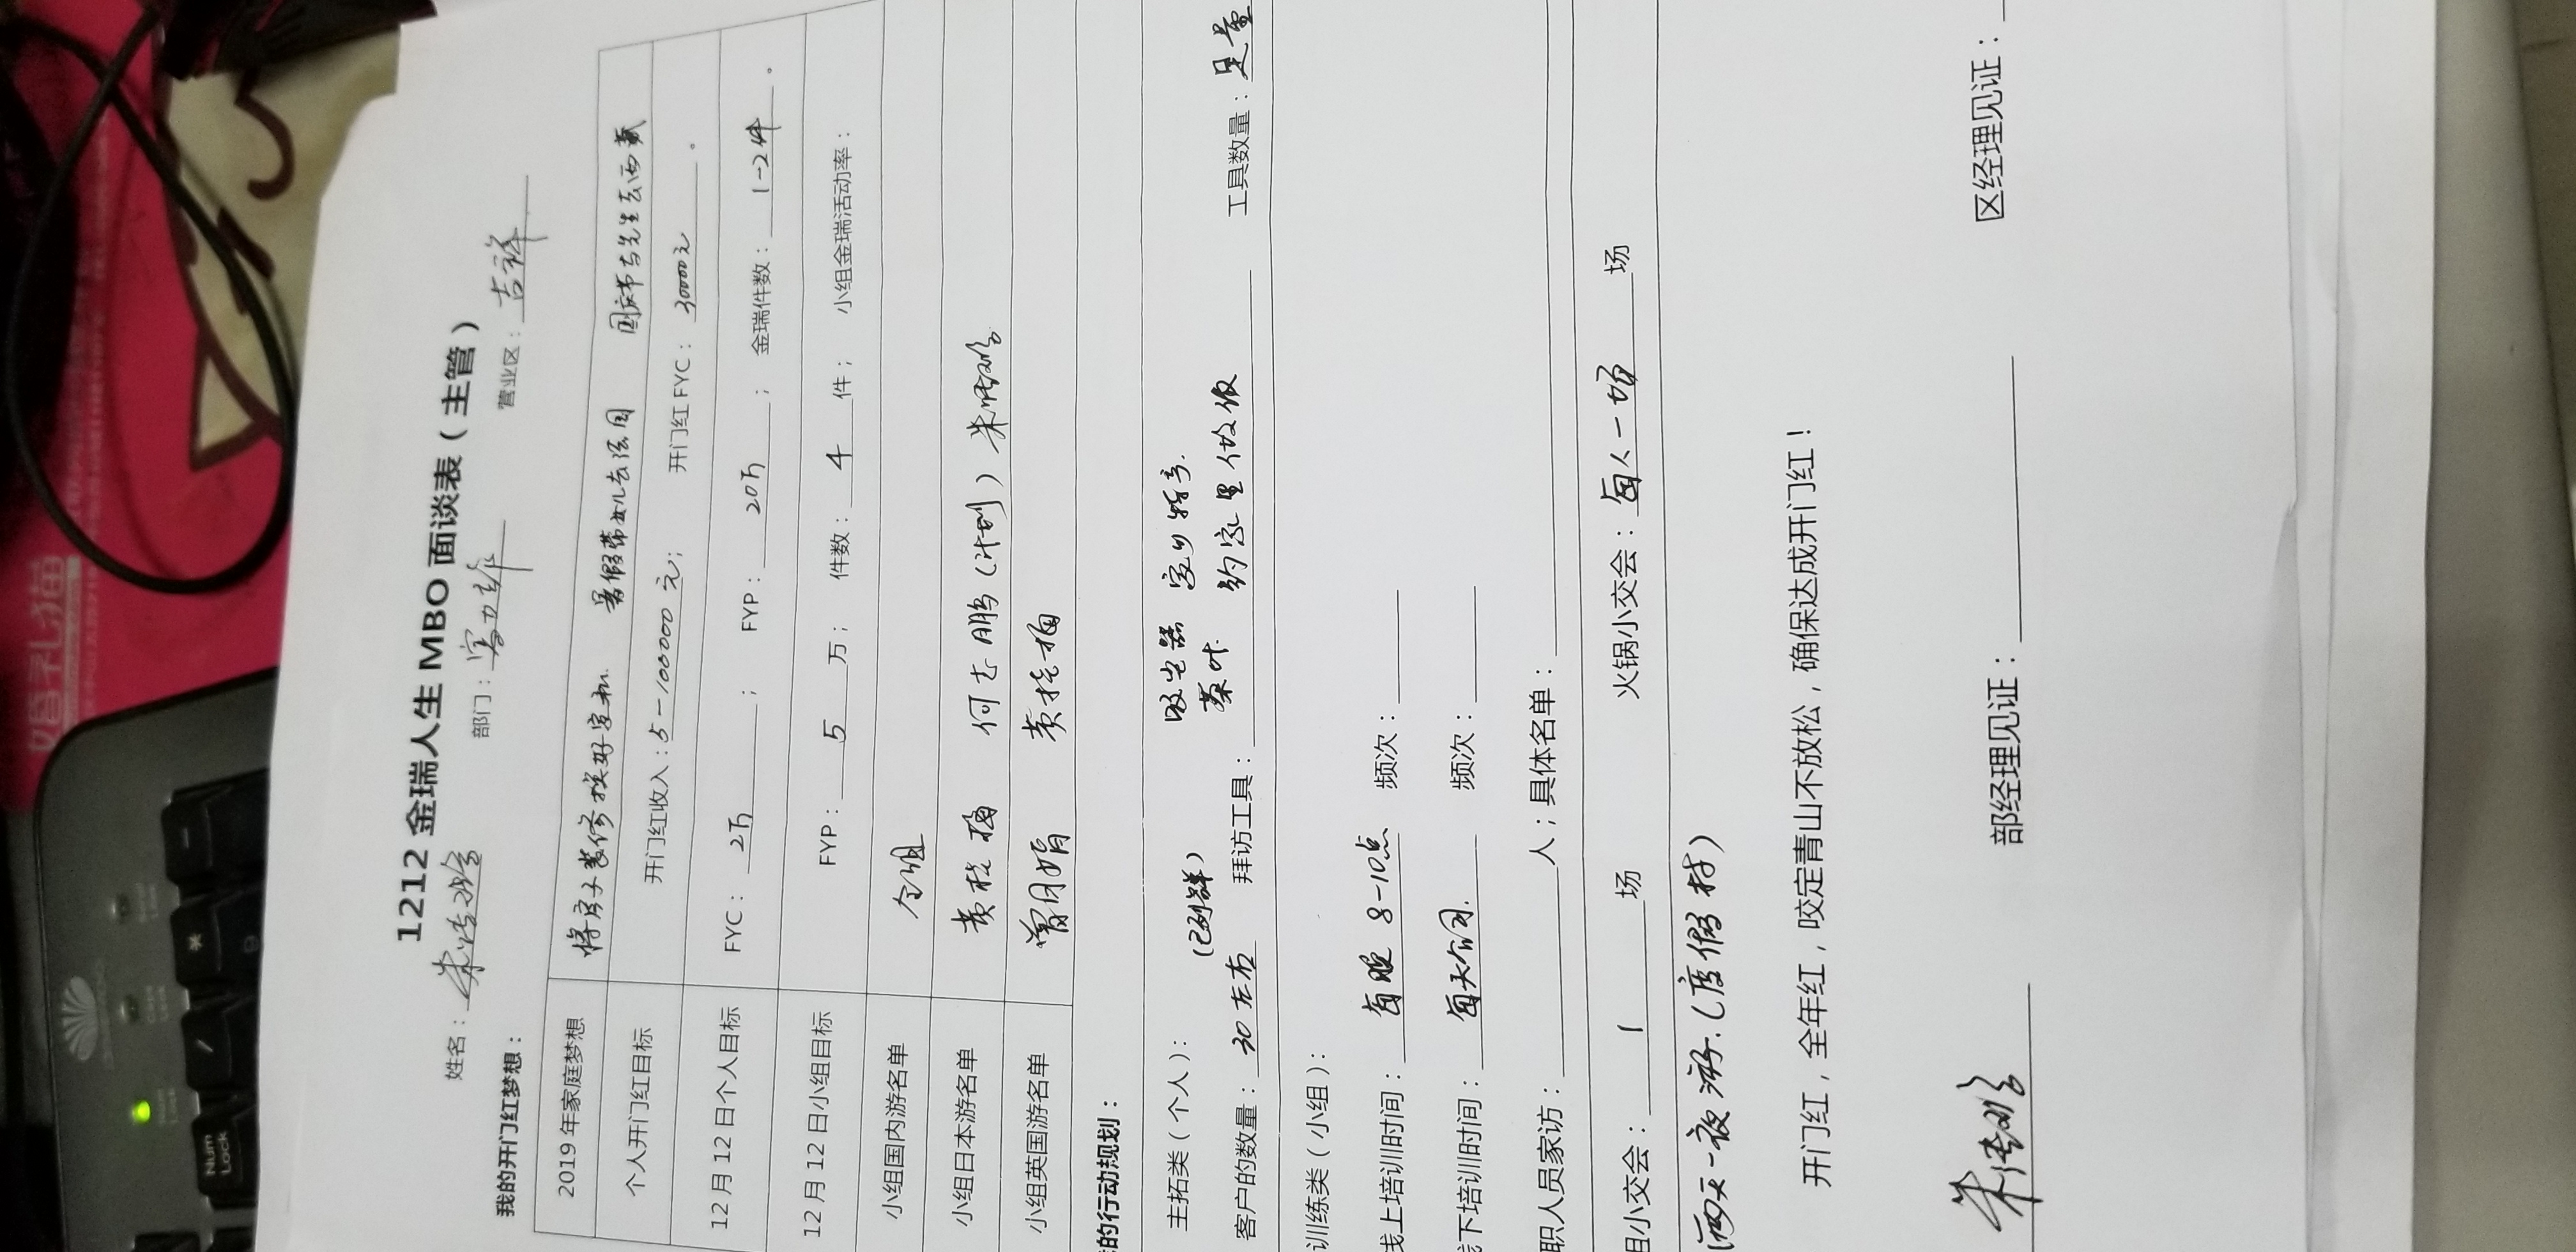 1212 金瑞人生 MBO 面谈表（主管）
姓名： 部门： 营业区：吉祥
我的开门红梦想：
2019 年家庭梦想 将房子装修换好字机 暑假带女儿去法国 国庆节与先生去西藏
个人开门红目标 开门红收入：5-100000 元； 开门红 FYC：30000元。
12 月 12 日个人目标 FYC：2万； FYP：20万； 金瑞件数：1-2件。
12 月 12 日小组目标 FYP：5万； 件数：4件； 小组金瑞活动率：
小组国内游名单 全组
小组日本游名单 黄桂梅 何志鹏（计划） 朱
小组英国游名单 曾月娟 黄桂梅
的行动规划：
主拓类（个人）： 吸尘器 家乡特产.
客户的数量：30左右（已列群） 拜访工具：茶叶 约家里做饭 工具数量：足量
训练类（小组）：
线上培训时间：每晚 8-10点 频次：
线下培训时间：每天 频次：
职人员家访： 人；具体名单：
组小交会：1 场 火锅小交会：每人一场 场
两天一夜游.（度假村）
开门红，全年红，咬定青山不放松，确保达成开门红！
部经理见证： 区经理见证：
Num Lock
婚礼猫